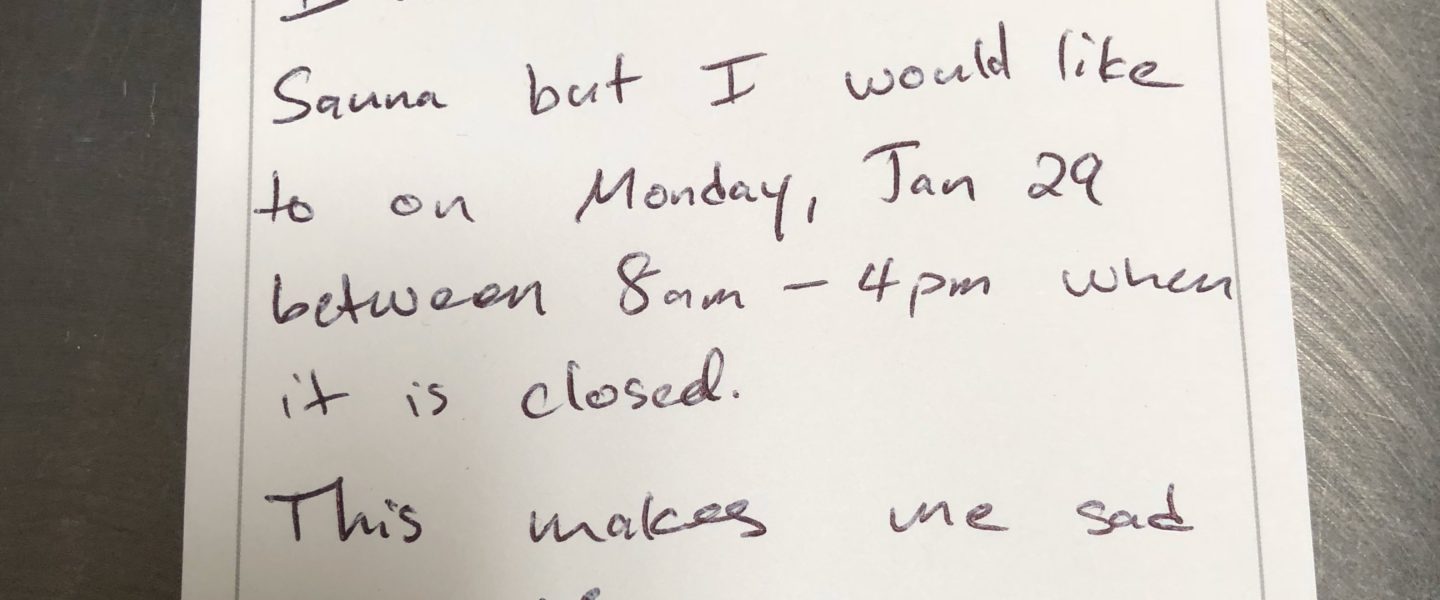 Sauna but I would like
to on Monday, Jan 29
between 8am - 4pm when
it is closed.
This makes me sad